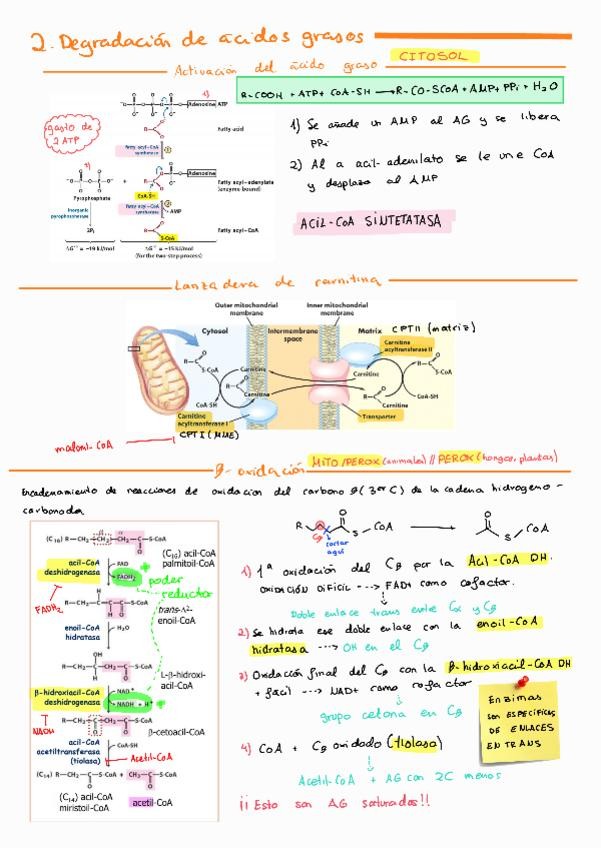 2. Degradación de ácidos grasos
Activación del ácido graso CITOSOL
R-COOH + ATP + CoA-SH → R-CO-SCoA + AMP + PPi + H2O
gasto de
2 ATP
1)
Adenosine ATP
Fatty acid
Fatty acyl-CoA
synthetase
2)
Adenosine
Fatty acyl-adenylate
(enzyme-bound)
Pyrophosphate
CoA-SH
Inorganic
pyrophosphatase
Fatty acyl-CoA
synthetase
AMP
2Pi
S-CoA
Fatty acyl-CoA
ΔG'° = -19 kJ/mol
ΔG'° = -15 kJ/mol
(for the two-step process)
1) Se añade un AMP al AG y se libera
PPi
2) Al a acil-adenilato se le une CoA
y desplaza al AMP
ACIL-CoA SINTETATASA
Lanzadera de carnitina
Outer mitochondrial
membrane
Inner mitochondrial
membrane
Cytosol
Intermembrane
space
Matrix CPTII (matriz)
Carnitine
acyltransferase II
R-C
O
S-CoA
Carnitine
R-C
O
Carnitine
CoA-SH
Carnitine
R-C
O
S-CoA
R-C
O
Carnitine
CoA-SH
Carnitine
acyltransferase I
Transporter
CPTI (MME)
malonil-CoA
β-oxidación MITO/PEROX (animales) // PEROX (hongos, plantas)
Encadenamiento de reacciones de oxidacion del carbono β (3er C) de la cadena hidrogeno-
carbonada
(C16) R—CH2—CH2—CH2—C—S-CoA
(C16) acil-CoA
palmitoil-CoA
acil-CoA
deshidrogenasa
FAD
FADH2
poder
reductor
FADH2
R—CH2—C=C—C—S-CoA
trans-Δ2-
enoil-CoA
enoil-CoA
hidratasa
H2O
R—CH2—C—CH2—C—S-CoA
L-β-hidroxi-
acil-CoA
β-hidroxiacil-CoA
deshidrogenasa
NAD+
NADH + H+
NADH
R—CH2—C—CH2—C—S-CoA
β-cetoacil-CoA
acil-CoA
acetiltransferasa
(tiolasa)
CoA-SH
Acetil-CoA
(C14) R—CH2—C—S-CoA + CH3—C—S-CoA
(C14) acil-CoA
miristoil-CoA
acetil-CoA
R
Cβ
cortar
aquí
S-CoA
S-CoA
1) 1ª oxidación del Cβ por la Acil-CoA DH.
OXIDACIÓN DIFÍCIL ---> FAD+ como cofactor.
Doble enlace trans entre Cα y Cβ
2) Se hidrata ese doble enlace con la enoil-CoA
hidratasa ---> OH en el Cβ
3) Oxidación final del Cβ con la β-hidroxiacil-CoA DH
+ fácil ---> NAD+ como cofactor
grupo cetona en Cβ
4) CoA + Cβ oxidado (tiolasa)
Acetil-CoA + AG con 2C menos
¡¡Esto son AG saturados!!
Enzimas
son ESPECÍFICAS
DE ENLACES
EN TRANS